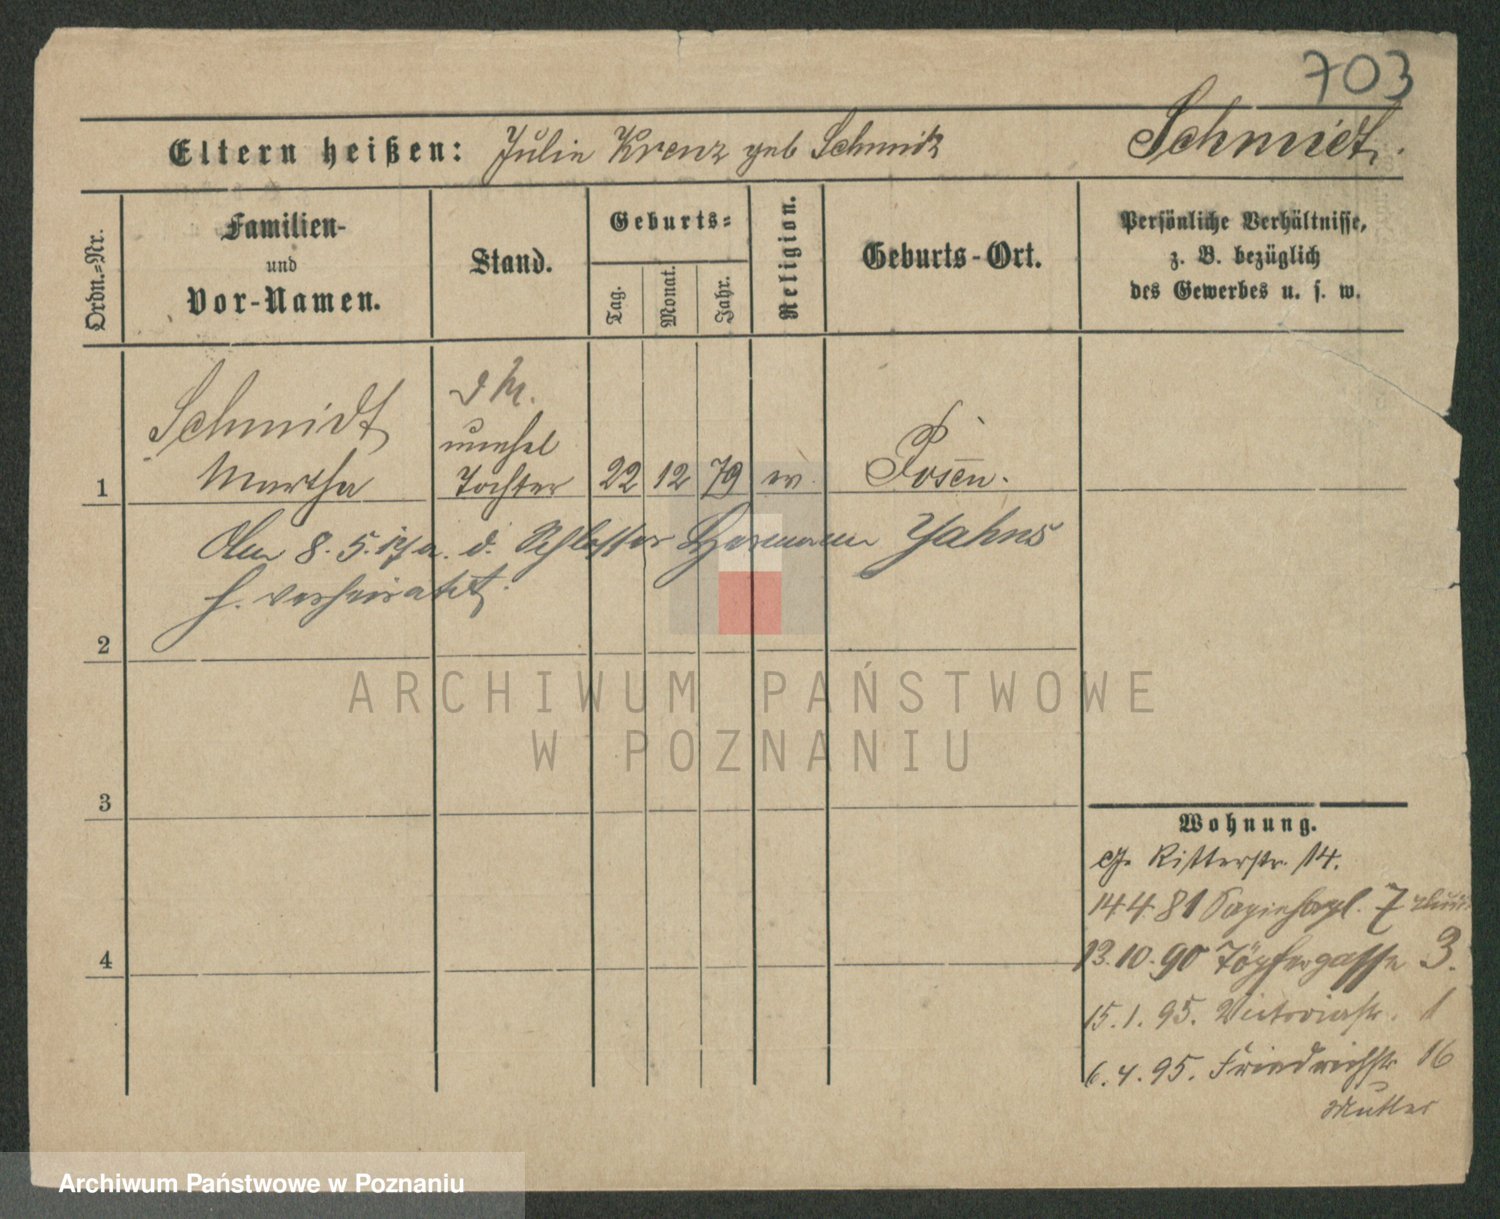 703
Eltern heißen: Julie Krenz geb Schmidt
Schmidt.
Ordn.=Nr.
Familien-
und
Vor-Namen.
Stand.
Geburts=
Tag.
Monat.
Jahr.
Religion.
Geburts-Ort.
Persönliche Verhältnisse,
z. B. bezüglich
des Gewerbes u. s. w.
1
Schmidt
Martha
unehel
Tochter
22
12
79
Posen.
Am 8. 5. d. Schlosser Hermann Jahns
verheiratet.
2
3
4
Wohnung.
Ritterstr. 14.
14 4 81 7
13.10.90 Töpfergasse 3.
15.1.95. Victoriastr. 1
6.4.95. Friedrichstr 16
Mutter
ARCHIWUM PAŃSTWOWE
W POZNANIU
Archiwum Państwowe w Poznaniu